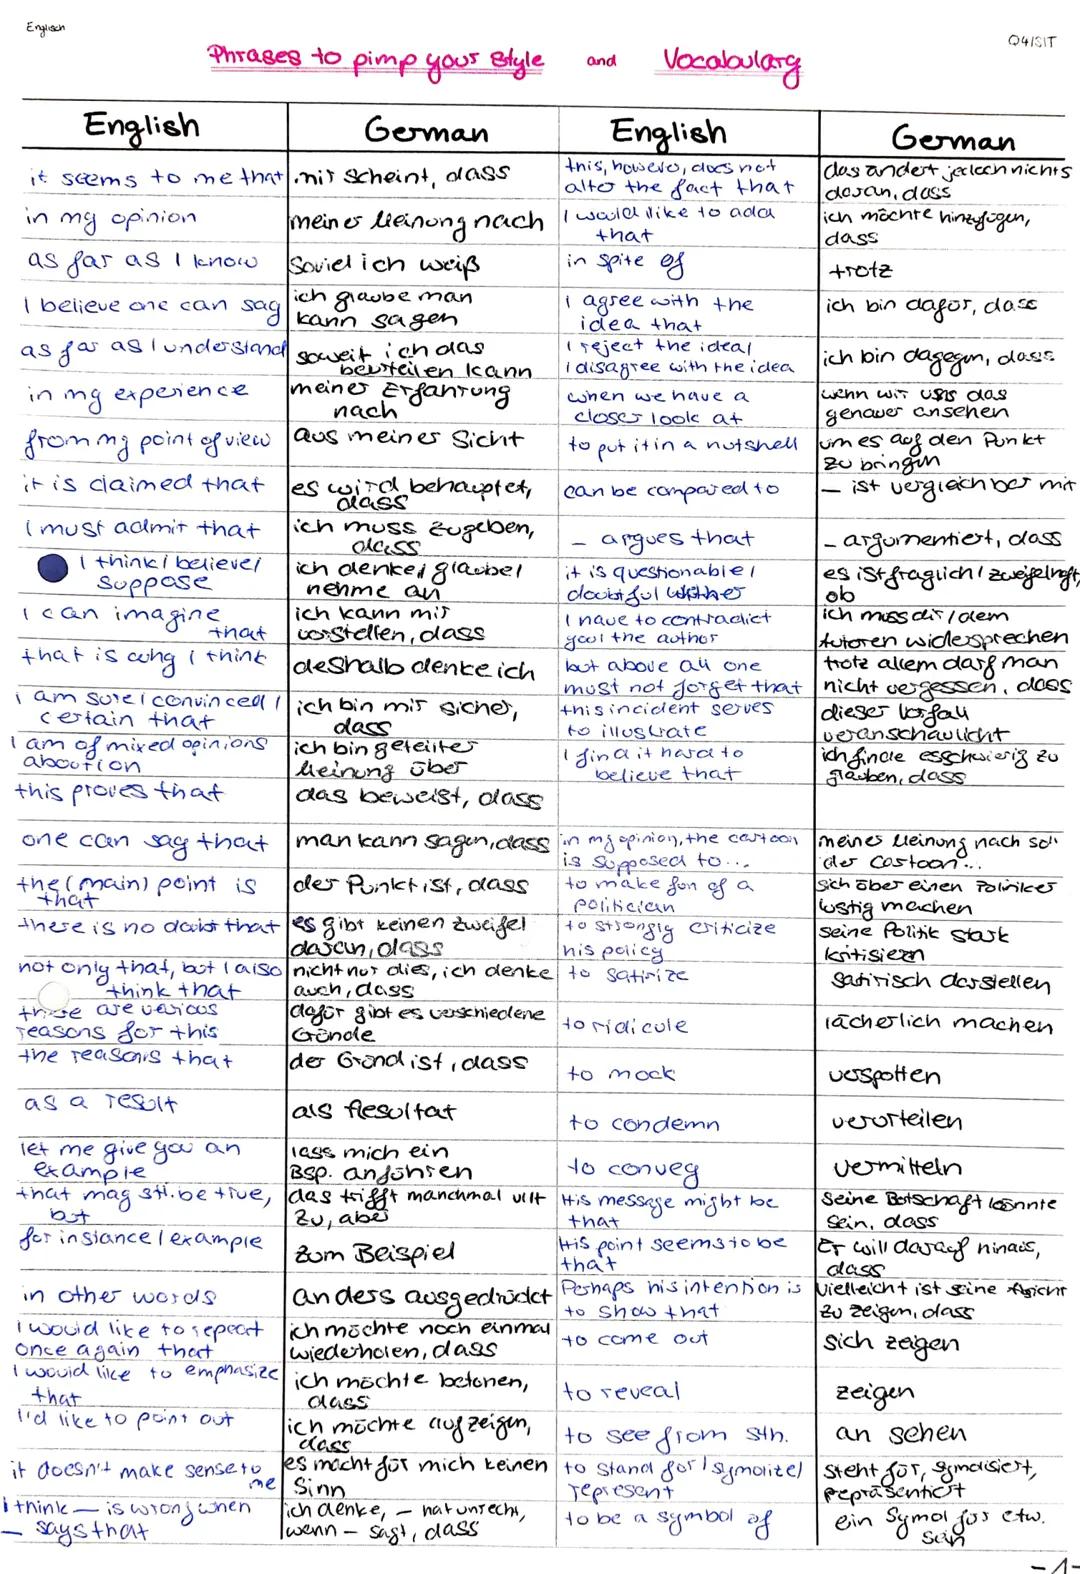 Englisch
Q4/SIT
Phrases to pimp your style and Vocabulary
English German English German
it seems to me that mir scheint, dass
this, however, does not alter the fact that
das ändert jedoch nichts daran, dass
in my opinion meiner Meinung nach
I would like to add that
ich möchte hinzufügen, dass
as far as I know Soviel ich weiß
in spite of trotz
I believe one can say
ich glaube man kann sagen
I agree with the idea that
ich bin dafür, dass
as far as I understand
soweit ich das beurteilen kann
I reject the idea/ I disagree with the idea
ich bin dagegen, dass
in my experience
meiner Erfahrung nach
when we have a closer look at
wenn wir uns das genauer ansehen
from my point of view aus meiner Sicht
to put it in a nutshell
um es auf den Punkt zu bringen
it is claimed that
es wird behauptet, dass
can be compared to
– ist vergleichbar mit
I must admit that
ich muss zugeben, dass
– argues that
– argumentiert, dass
I think/ believe/ suppose
ich denke/ glaube/ nehme an
it is questionable/ doubtful whether
es ist fraglich/ zweifelhaft, ob
I can imagine that
ich kann mir vorstellen, dass
I have to contradict you/ the author
ich muss dir/dem Autoren widersprechen
that is why I think
deshalb denke ich
but above all one must not forget that
trotz allem darf man nicht vergessen, dass
I am sure/ convinced/ certain that
ich bin mir sicher, dass
this incident serves to illustrate
dieser Vorfall veranschaulicht
I am of mixed opinions about/on
ich bin geteilter Meinung über
I find it hard to believe that
ich finde es schwierig zu glauben, dass
this proves that das beweist, dass
one can say that man kann sagen, dass
in my opinion, the cartoon is supposed to...
meiner Meinung nach soll der Cartoon...
the (main) point is that
der Punkt ist, dass
to make fun of a politician
sich über einen Politiker lustig machen
there is no doubt that
es gibt keinen Zweifel daran, dass
to strongly criticize his policy
seine Politik stark kritisieren
not only that, but I also think that
nicht nur dies, ich denke auch, dass
to satirize
satirisch darstellen
there are various reasons for this
dafür gibt es verschiedene Gründe
to ridicule
lächerlich machen
the reason is that
der Grund ist, dass
to mock
verspotten
as a result
als Resultat
to condemn
verurteilen
let me give you an example
lass mich ein Bsp. anführen
to convey
vermitteln
that may still be true, but
das trifft manchmal vllt zu, aber
His message might be that
Seine Botschaft könnte sein, dass
for instance/ example
zum Beispiel
His point seems to be that
Er will darauf hinaus, dass
in other words
anders ausgedrückt
Perhaps his intention is to show that
Vielleicht ist seine Absicht zu zeigen, dass
I would like to repeat once again that
ich möchte noch einmal wiederholen, dass
to come out
sich zeigen
I would like to emphasize that
ich möchte betonen, dass
to reveal
zeigen
I'd like to point out
ich möchte aufzeigen, dass
to see from sth.
an sehen
it doesn't make sense to me
es macht für mich keinen Sinn
to stand for/ symolize/ represent
steht für, symolisiert, repräsentiert
I think – is wrong when – says that
ich denke, – hat unrecht, wenn – sagt, dass
to be a symbol of
ein Symol für etw. sein
-1-